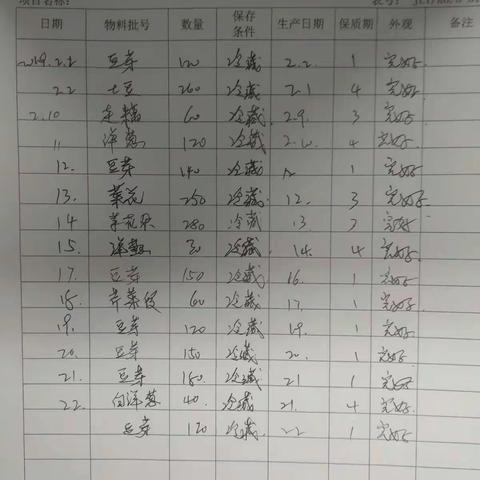 项目名称：
日期 物料批号 数量 保存条件 生产日期 保质期 外观 备注
2019.2.2 豆芽 120 冷藏 2.2. 1 完好.
2.2 土豆 260 冷藏 2.1 4 完好.
2.10 60 冷藏. 2.9. 3 完好.
11 洋葱 120 冷藏. 2.10. 4 完好.
12. 豆芽 140 冷藏 12 1 完好.
13. 菜花 250 冷藏 12. 3 完好.
14 280 冷藏 13 完好.
15. 洋葱 30 冷藏. 14. 4 完好.
17. 豆芽 150 冷藏 16. 1 完好.
18. 60 冷藏. 17. 1 完好.
19. 豆芽 120 冷藏 19. 1 完好.
20. 豆芽 150 冷藏. 20. 1 完好
21. 豆芽 180. 冷藏. 21 1 完好.
22. 白洋葱 40. 冷藏. 21. 4 完好.
豆芽 120 冷藏. 22 1 完好.